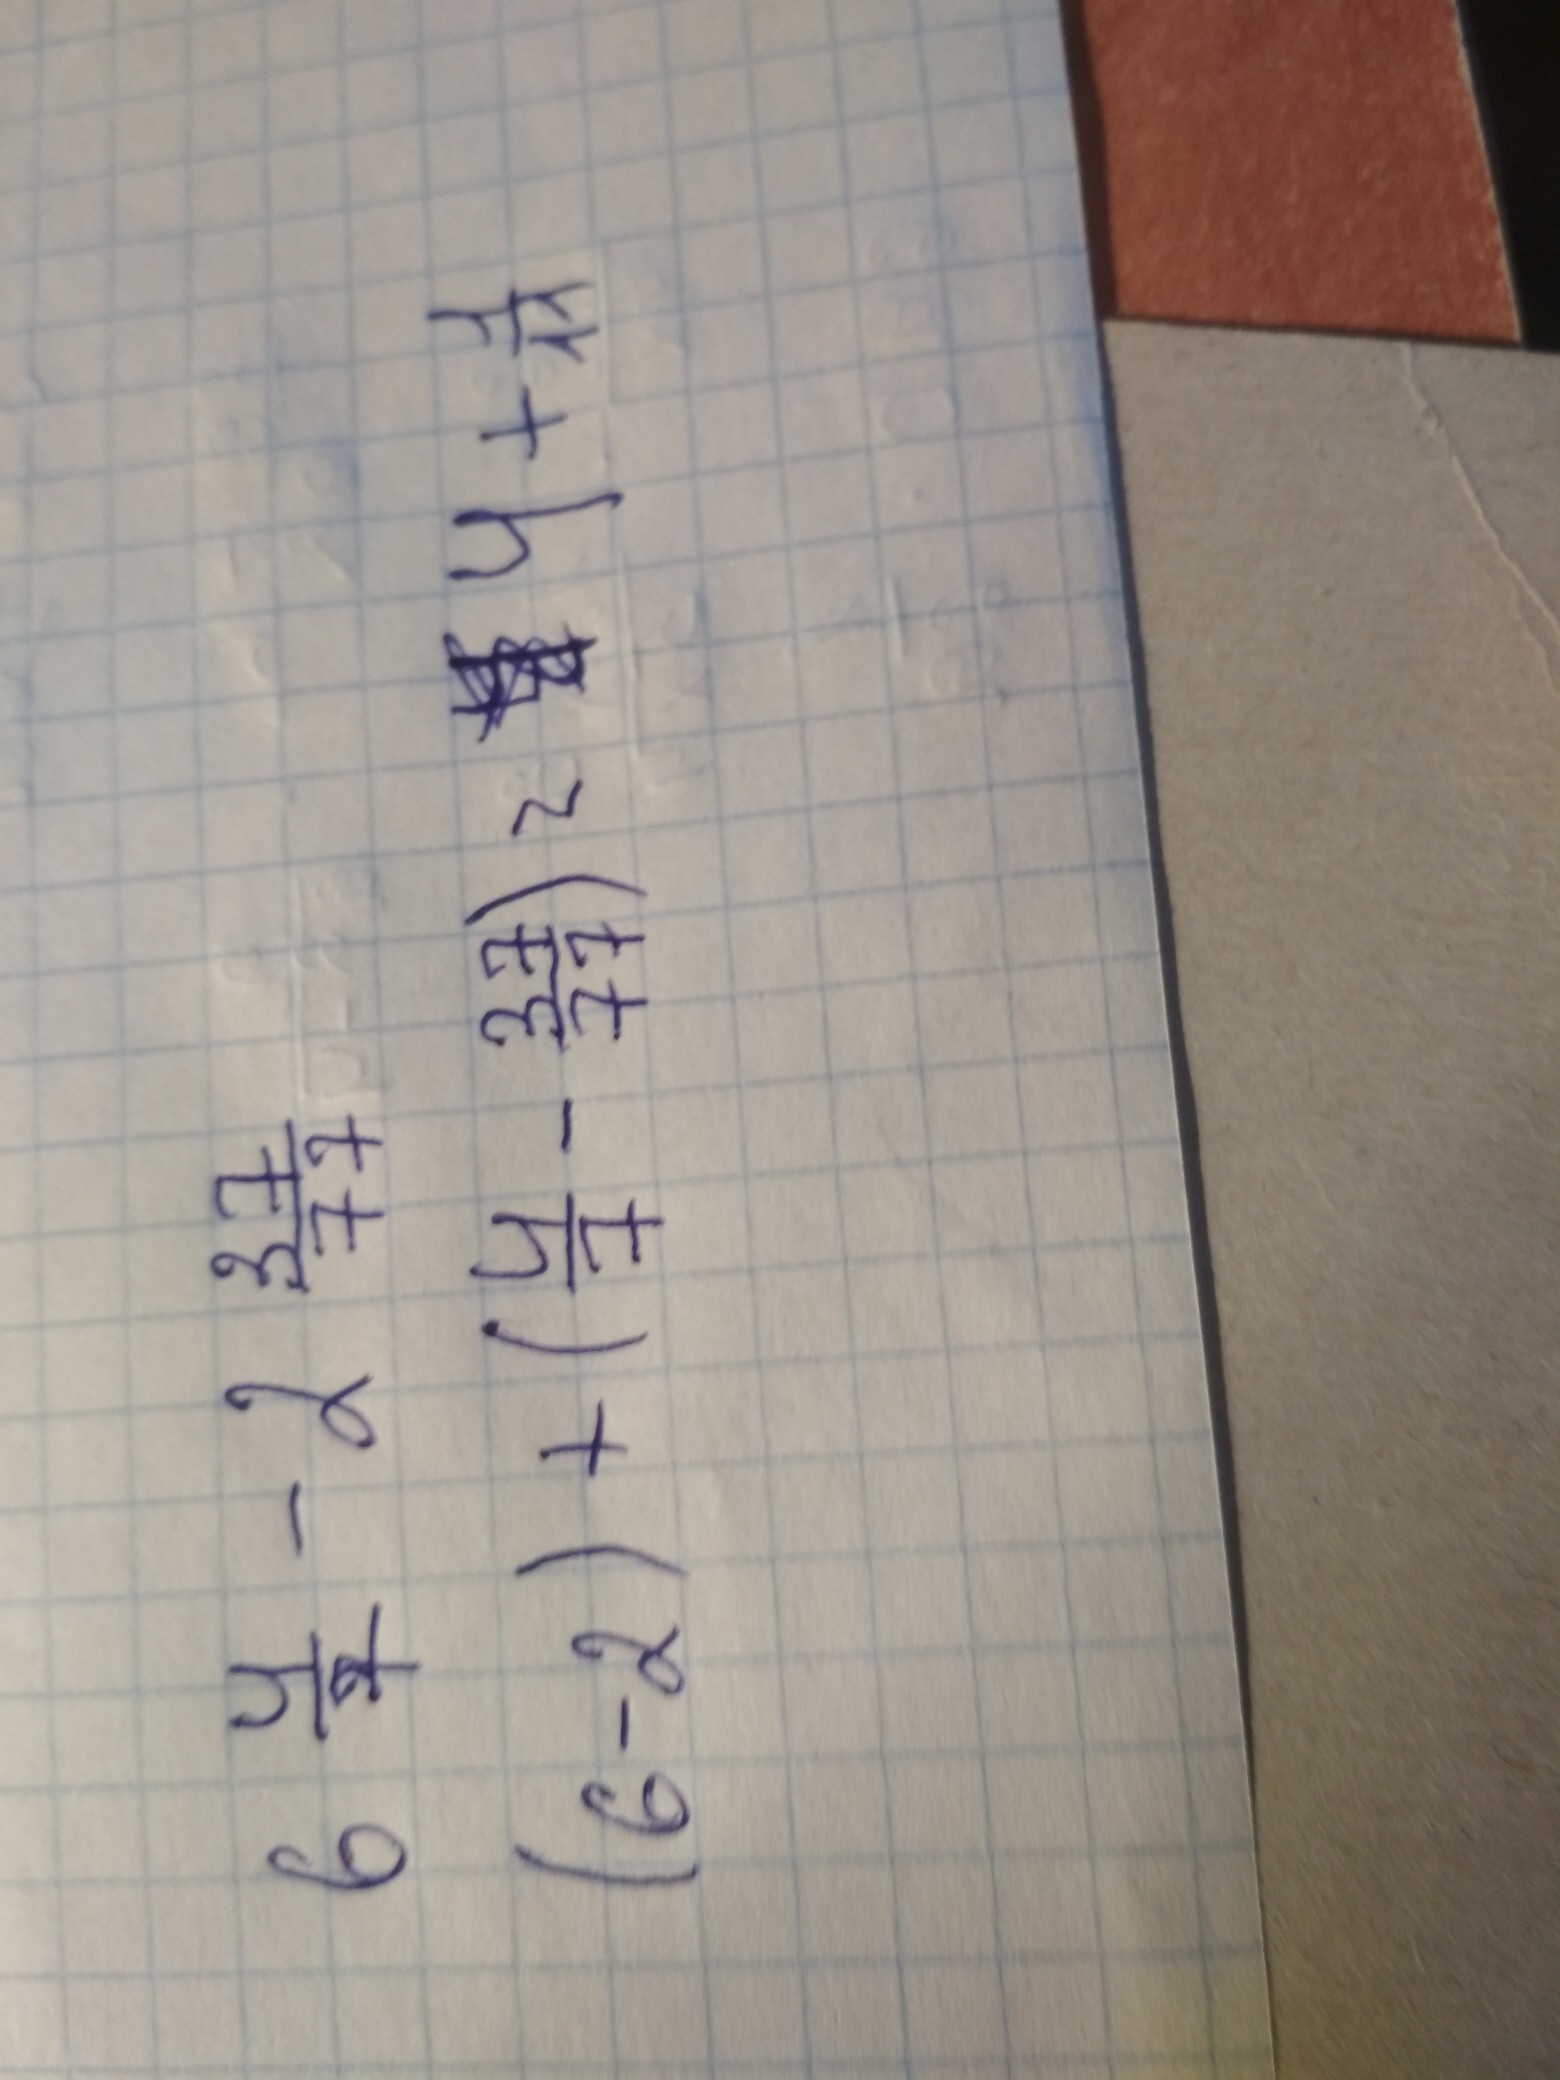 6 4/7 - 2 37/77
(6-2) + (4/7 - 37/77) = 4 + 1/11